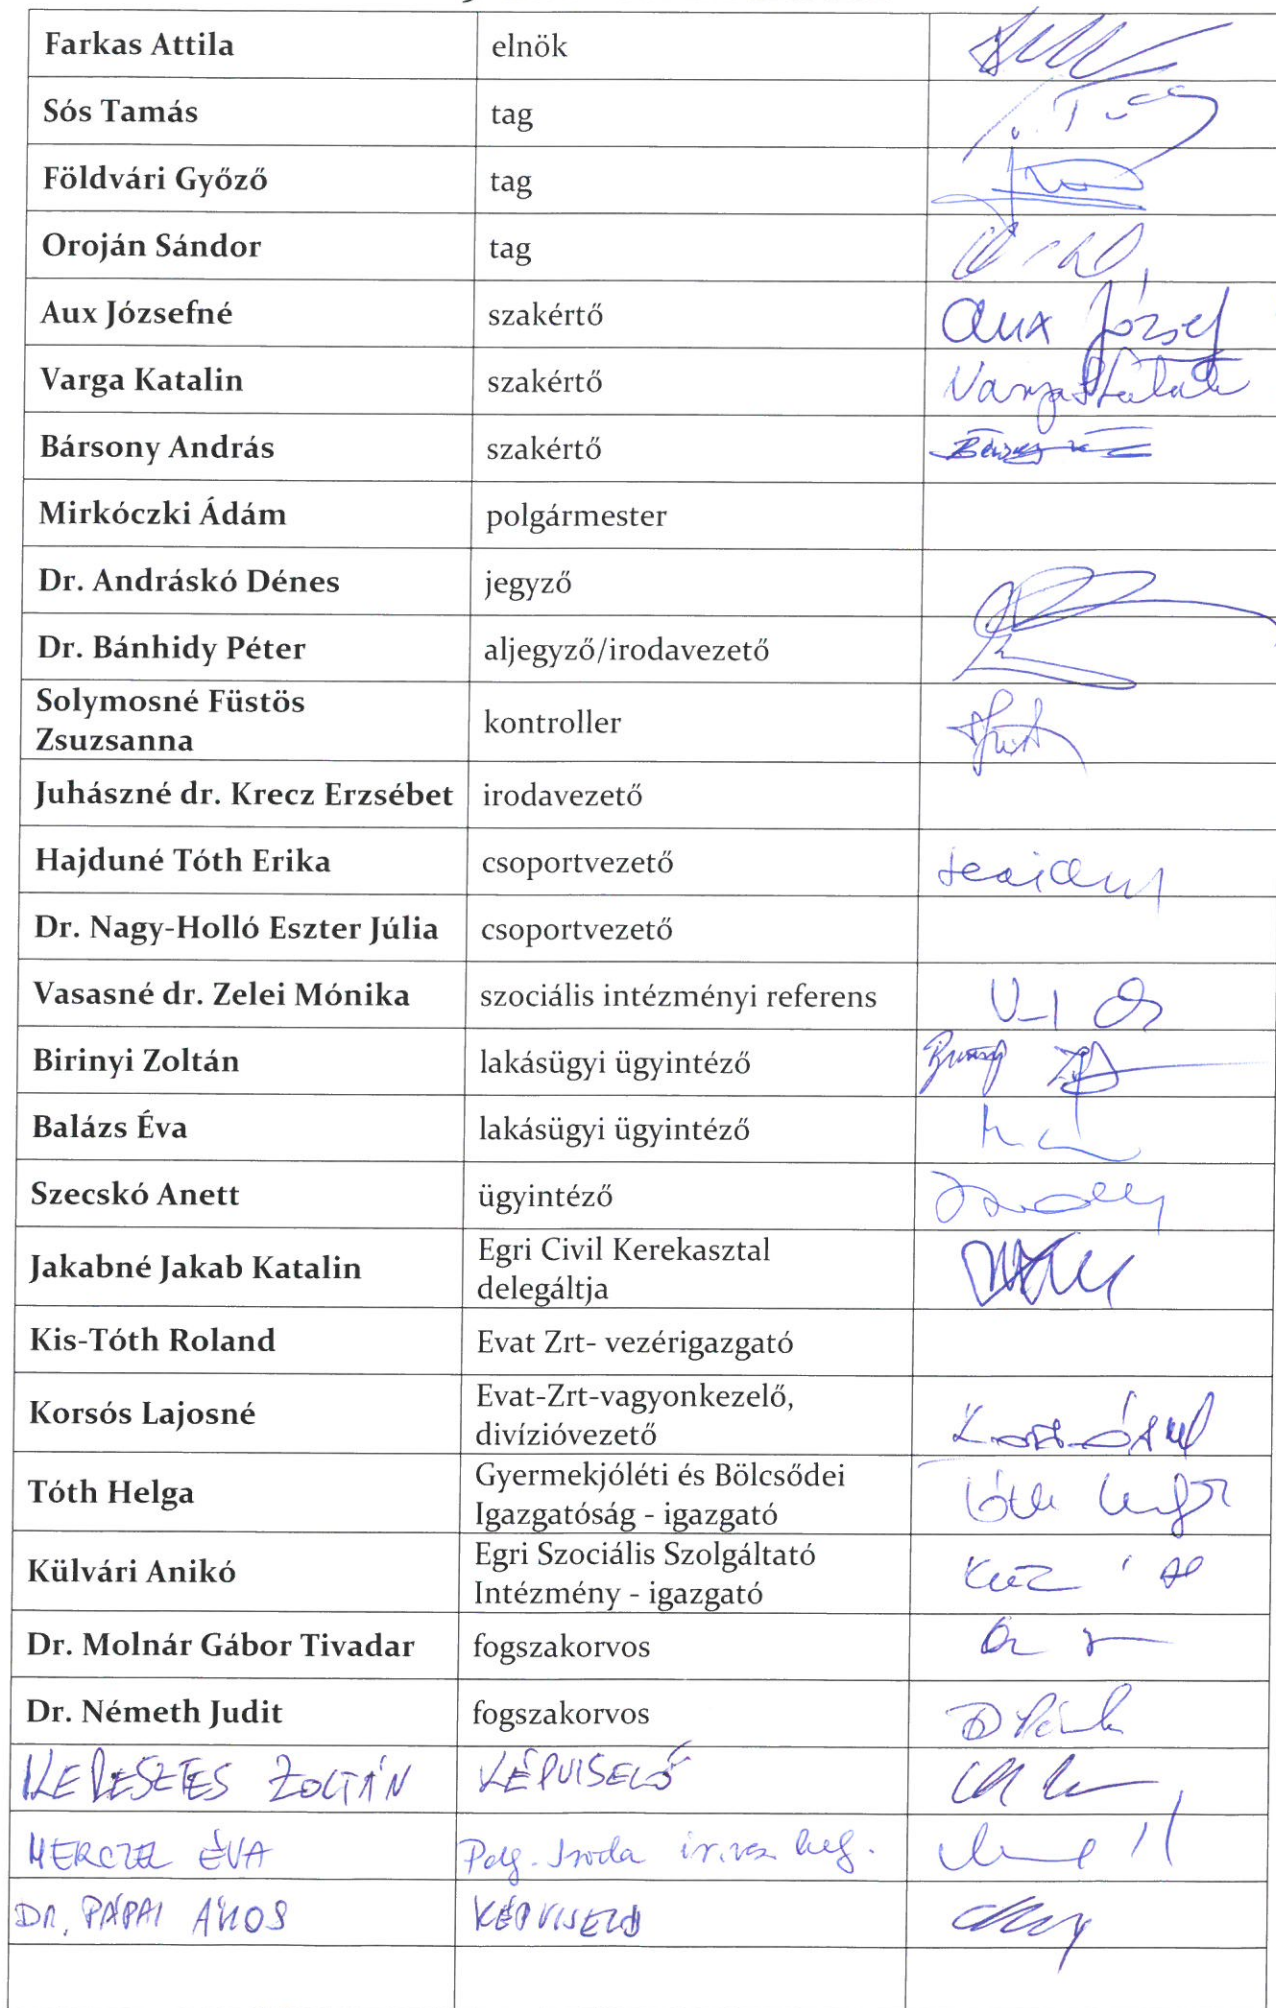 Farkas Attila elnök
Sós Tamás tag
Földvári Győző tag
Oroján Sándor tag
Aux Józsefné szakértő Aux József
Varga Katalin szakértő Varga Katali
Bársony András szakértő
Mirkóczki Ádám polgármester
Dr. Andráskó Dénes jegyző
Dr. Bánhidy Péter aljegyző/irodavezető
Solymosné Füstös
Zsuzsanna kontroller
Juhászné dr. Krecz Erzsébet irodavezető
Hajduné Tóth Erika csoportvezető
Dr. Nagy-Holló Eszter Júlia csoportvezető
Vasasné dr. Zelei Mónika szociális intézményi referens
Birinyi Zoltán lakásügyi ügyintéző
Balázs Éva lakásügyi ügyintéző
Szecskó Anett ügyintéző
Jakabné Jakab Katalin Egri Civil Kerekasztal
delegáltja
Kis-Tóth Roland Evat Zrt- vezérigazgató
Korsós Lajosné Evat-Zrt-vagyonkezelő,
divízióvezető
Tóth Helga Gyermekjóléti és Bölcsődei
Igazgatóság - igazgató Tóth Helga
Külvári Anikó Egri Szociális Szolgáltató
Intézmény - igazgató
Dr. Molnár Gábor Tivadar fogszakorvos
Dr. Németh Judit fogszakorvos
KERESZTES ZOLTÁN KÉPVISELŐ
HERCZEG ÉVA Polg. Iroda ir.vez. hely.
DR. PÁPAI ÁKOS KÉPVISELŐ